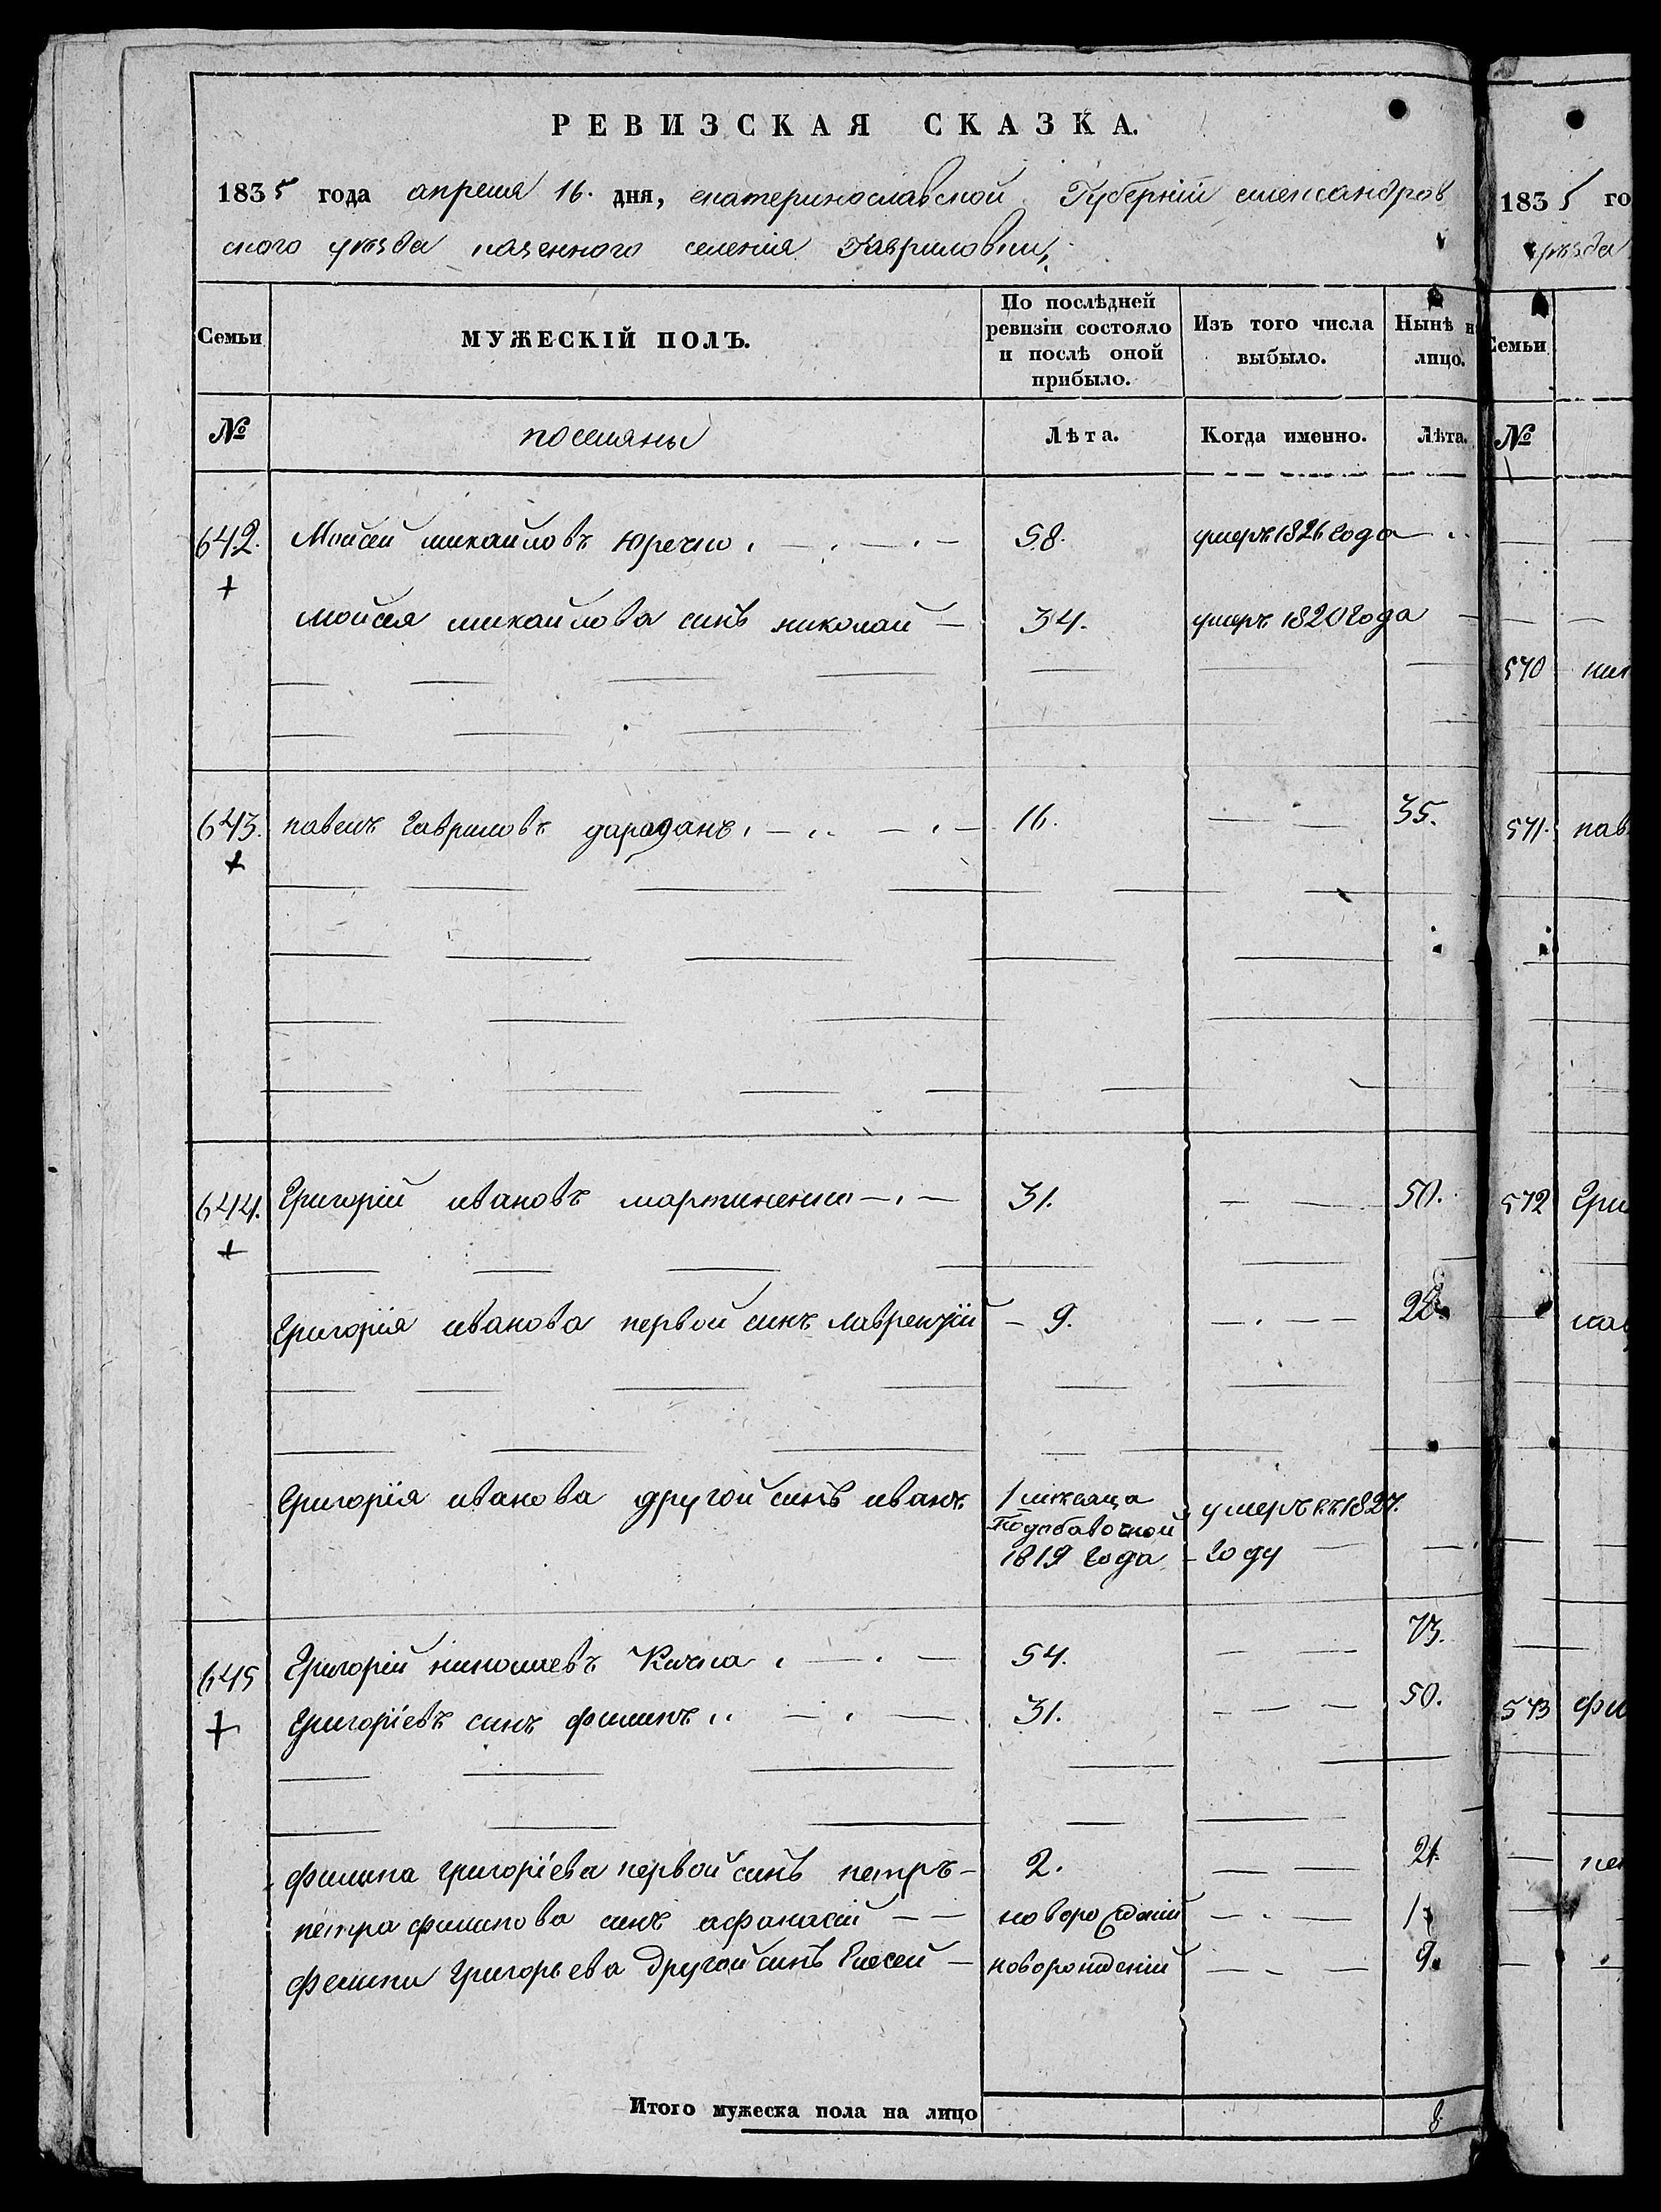 РЕВИЗСКАЯ СКАЗКА.
1835 года апреля 16. дня, екатеринославской Губернiй александров
ского уѣзда казенного селенiя Гавриловки,
Семьи
МУЖЕСКIЙ ПОЛЪ.
По послѣдней ревизiи состояло и послѣ оной прибыло.
Изъ того числа выбыло.
Нынѣ н
лицо.
№
поселяны
Лѣта.
Когда именно.
Лѣта.
642. Мойсей михайловъ Юречко 58. умеръ 1826 года
Мойсея михайлова синъ николай 34. умеръ 1820 года
643. павелъ гавриловъ дараданъ 16. 35.
644. Григорiй ивановъ мартиненко 31. 50.
Григорiя иванова первой синъ лаврентiй 9. 28.
Григорiя иванова другой синъ иванъ 1 месяца
По добавочной
1819 года
умеръ въ 1827.
году
645 Григорiй николаевъ Качка 54. 73.
Григорiевъ синъ филипъ 31. 50.
филипа григорiева первой синъ петръ 2. 21.
петра филипова синъ афанасiй новорожденiй 1
филипа григорьева другой синъ Елесей новорожденiй 9.
Итого мужеска пола на лицо 8.
1835 го
уѣзда
Семьи
№
570
571. пав
572 Гри
лав
573 фи